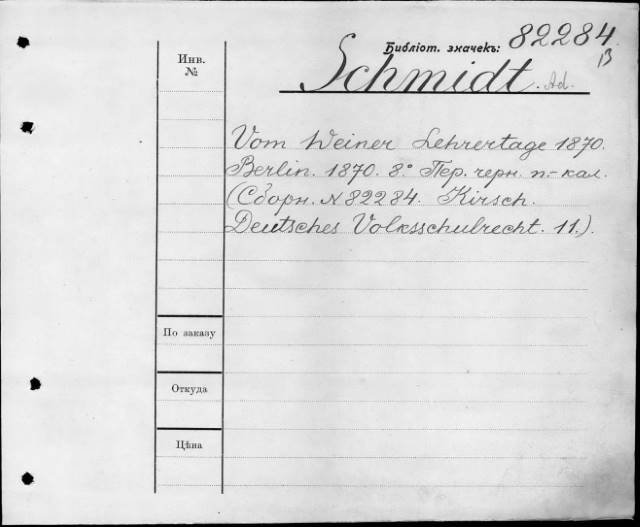 Библіот. значекъ: 82284
B
Инв.
№
Schmidt. Ad.
Vom Weiner Lehrertage 1870.
Berlin. 1870. 8° Пер. черн. п.-кал.
(Сборн. N 82284. Kirsch.
Deutsches Volksschulrecht. 11.).
По заказу
Откуда
Цѣна